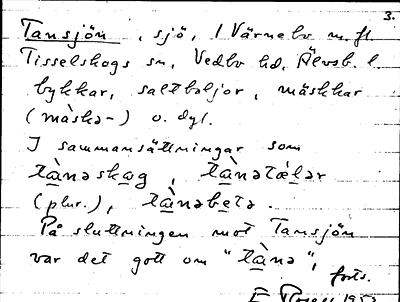 3.
Tansjön, sjö, / Värnebo m. fl.
Tisselskogs sn, Vedbo hd, Älvsb. l.
bykkar, saltbaljor, mäskkar
(màskə-) o. dyl.
I sammansättningar som
tànəskag, tànətælər
(plur.), tànəbetə.
På sluttningen mot Tansjön
var det gott om "tànə",
forts.